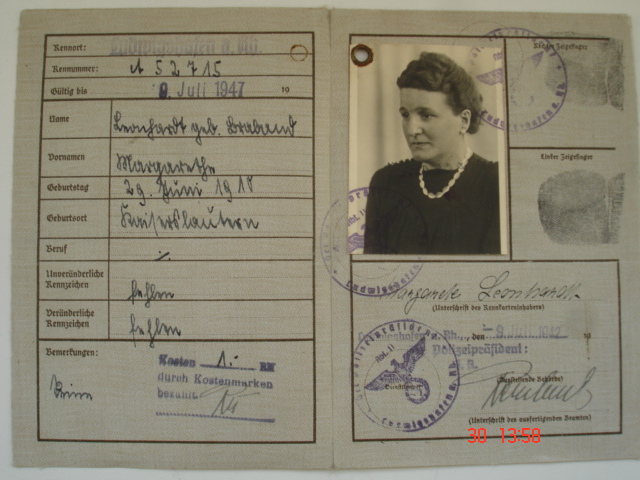 Kennort: Ludwigshafen a. Rh.
Kennummer: A 52715
Gültig bis 9. Juli 1947 19
Name Leonhardt geb. Braband
Vornamen Margarethe
Geburtstag 29. Juni 1918
Geburtsort Kaiserslautern
Beruf ./.
Unveränderliche Kennzeichen fehlen
Veränderliche Kennzeichen fehlen
Bemerkungen: Keine
Kosten 1.- RM
durch Kostenmarken
bezahlt.
Rechter Zeigefinger
Linker Zeigefinger
Margarete Leonhardt
(Unterschrift des Kennkarteninhabers)
Ludwigshafen a. Rh., den - 9. Juli 1942 19
Polizeipräsident:
(Ausstellende Behörde)
(Unterschrift des ausfertigenden Beamten)
Ludwigshafen a. Rh.
30 13:58